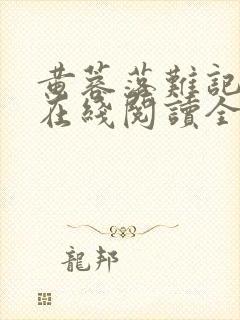 黃蓉落難記
在綫閱讀全
龍邦